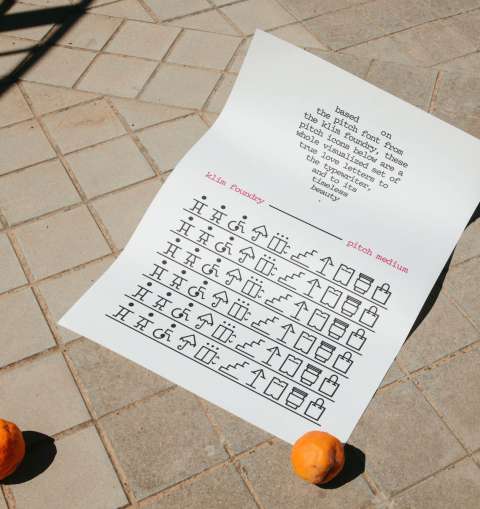 based on
the pitch font from
the klim foundry, these
pitch icons below are a
whole visualized set of
true love letters to
the typewriter,
and to its
timeless
beauty
.
klim foundry
pitch medium